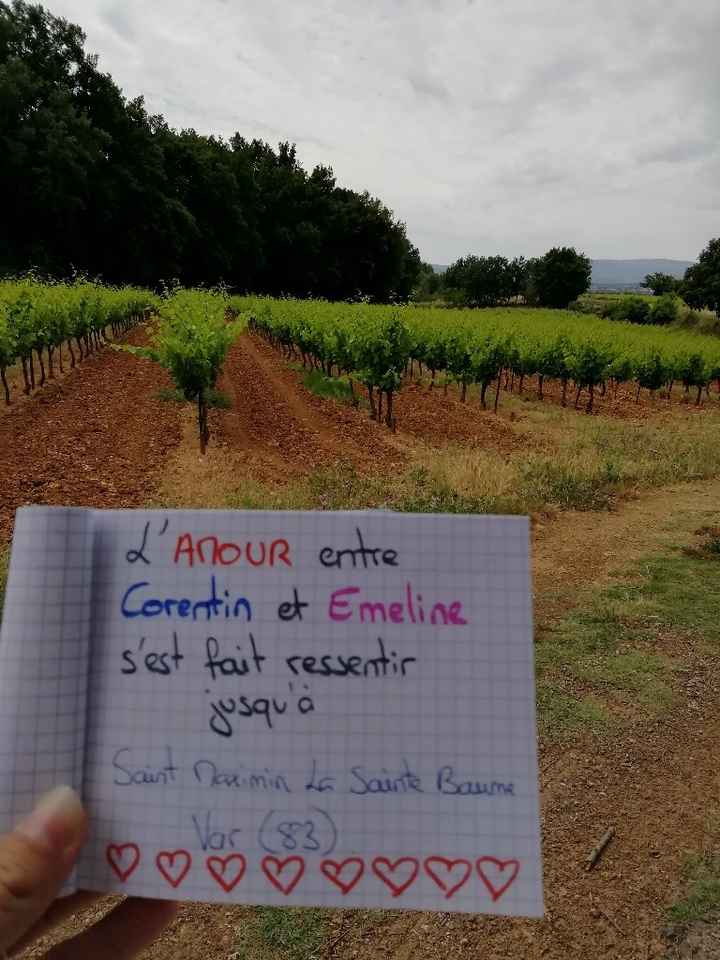 L'AMOUR entre
Corentin et Emeline
s'est fait ressentir
jusqu'à
Saint Maximin La Sainte Baume
Var (83)